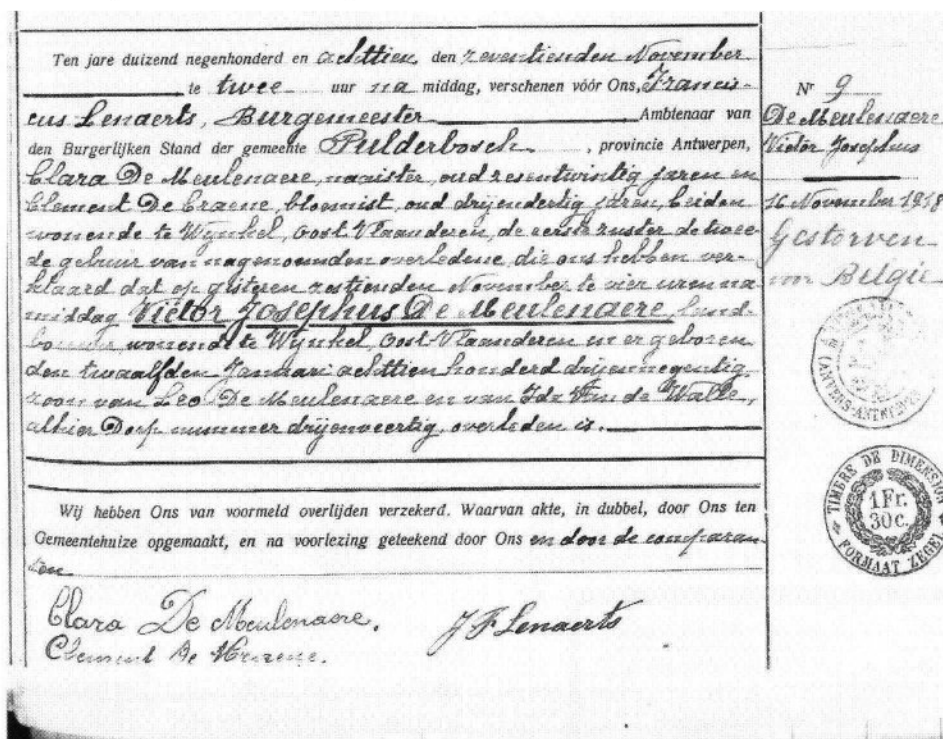 Ten jare duizend negenhonderd en achttien den zeventienden November
te twee uur na middag, verschenen vóór Ons, Francis-
cus Lenaerts, Burgemeester Ambtenaar van
den Burgerlijken Stand der gemeente Pulderbosch, provincie Antwerpen,
Clara De Meulenaere, naaister, oud zesentwintig jaren en
Clement De Craene, bloemist, oud drijendertig jaren, beiden
wonende te Wynkel, Oost Vlaanderen, de eerste zuster de twee
de gebuur van nagenoemden overledene, die ons hebben ver-
klaard dat op gisteren zestienden November te vier uren na
middag Victor Josephus De Meulenaere, land-
bouwer, wonende te Wynkel, Oost Vlaanderen en er geboren
den twaalfden Januari achttien honderd drijennegentig
zoon van Leo De Meulenaere en van Ida Van de Walle,
alhier Dorp nummer drijenveertig, overleden is.
Wij hebben Ons van voormeld overlijden verzekerd. Waarvan akte, in dubbel, door Ons ten
Gemeentehuize opgemaakt, en na voorlezing geteekend door Ons en door de comparan-
ten
Clara De Meulenaere.
J F Lenaerts
Clement De Craene.
Nr 9
De Meulenaere
Victor Josephus
16 November 1918
Gestorven
voor België
(ANVERS-ANTWERPEN)
TIMBRE DE DIMENSION
1 Fr.
30 c.
FORMAAT ZEGEL